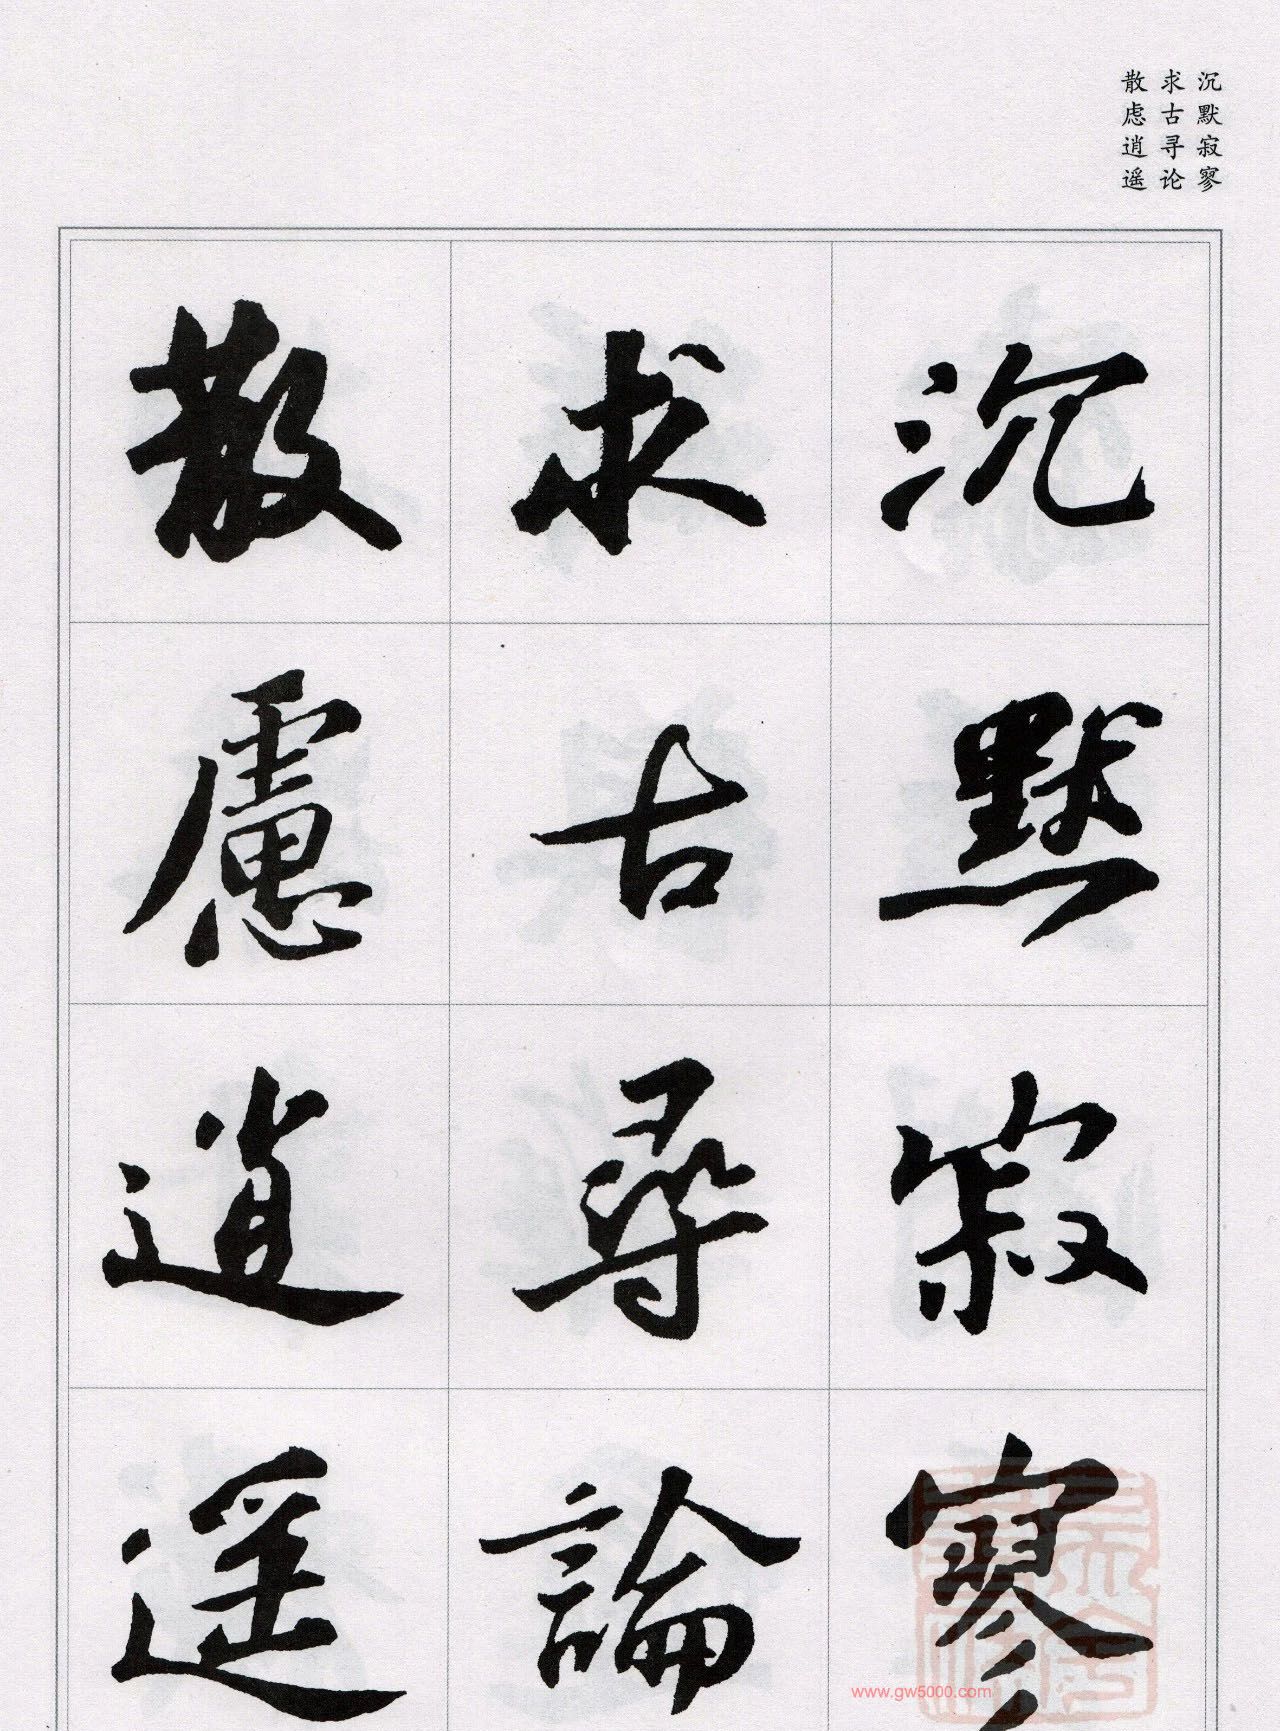 沉默寂寥
求古寻论
散虑逍遥
沉默寂寥
求古尋論
散慮逍遥
www.gw5000.com